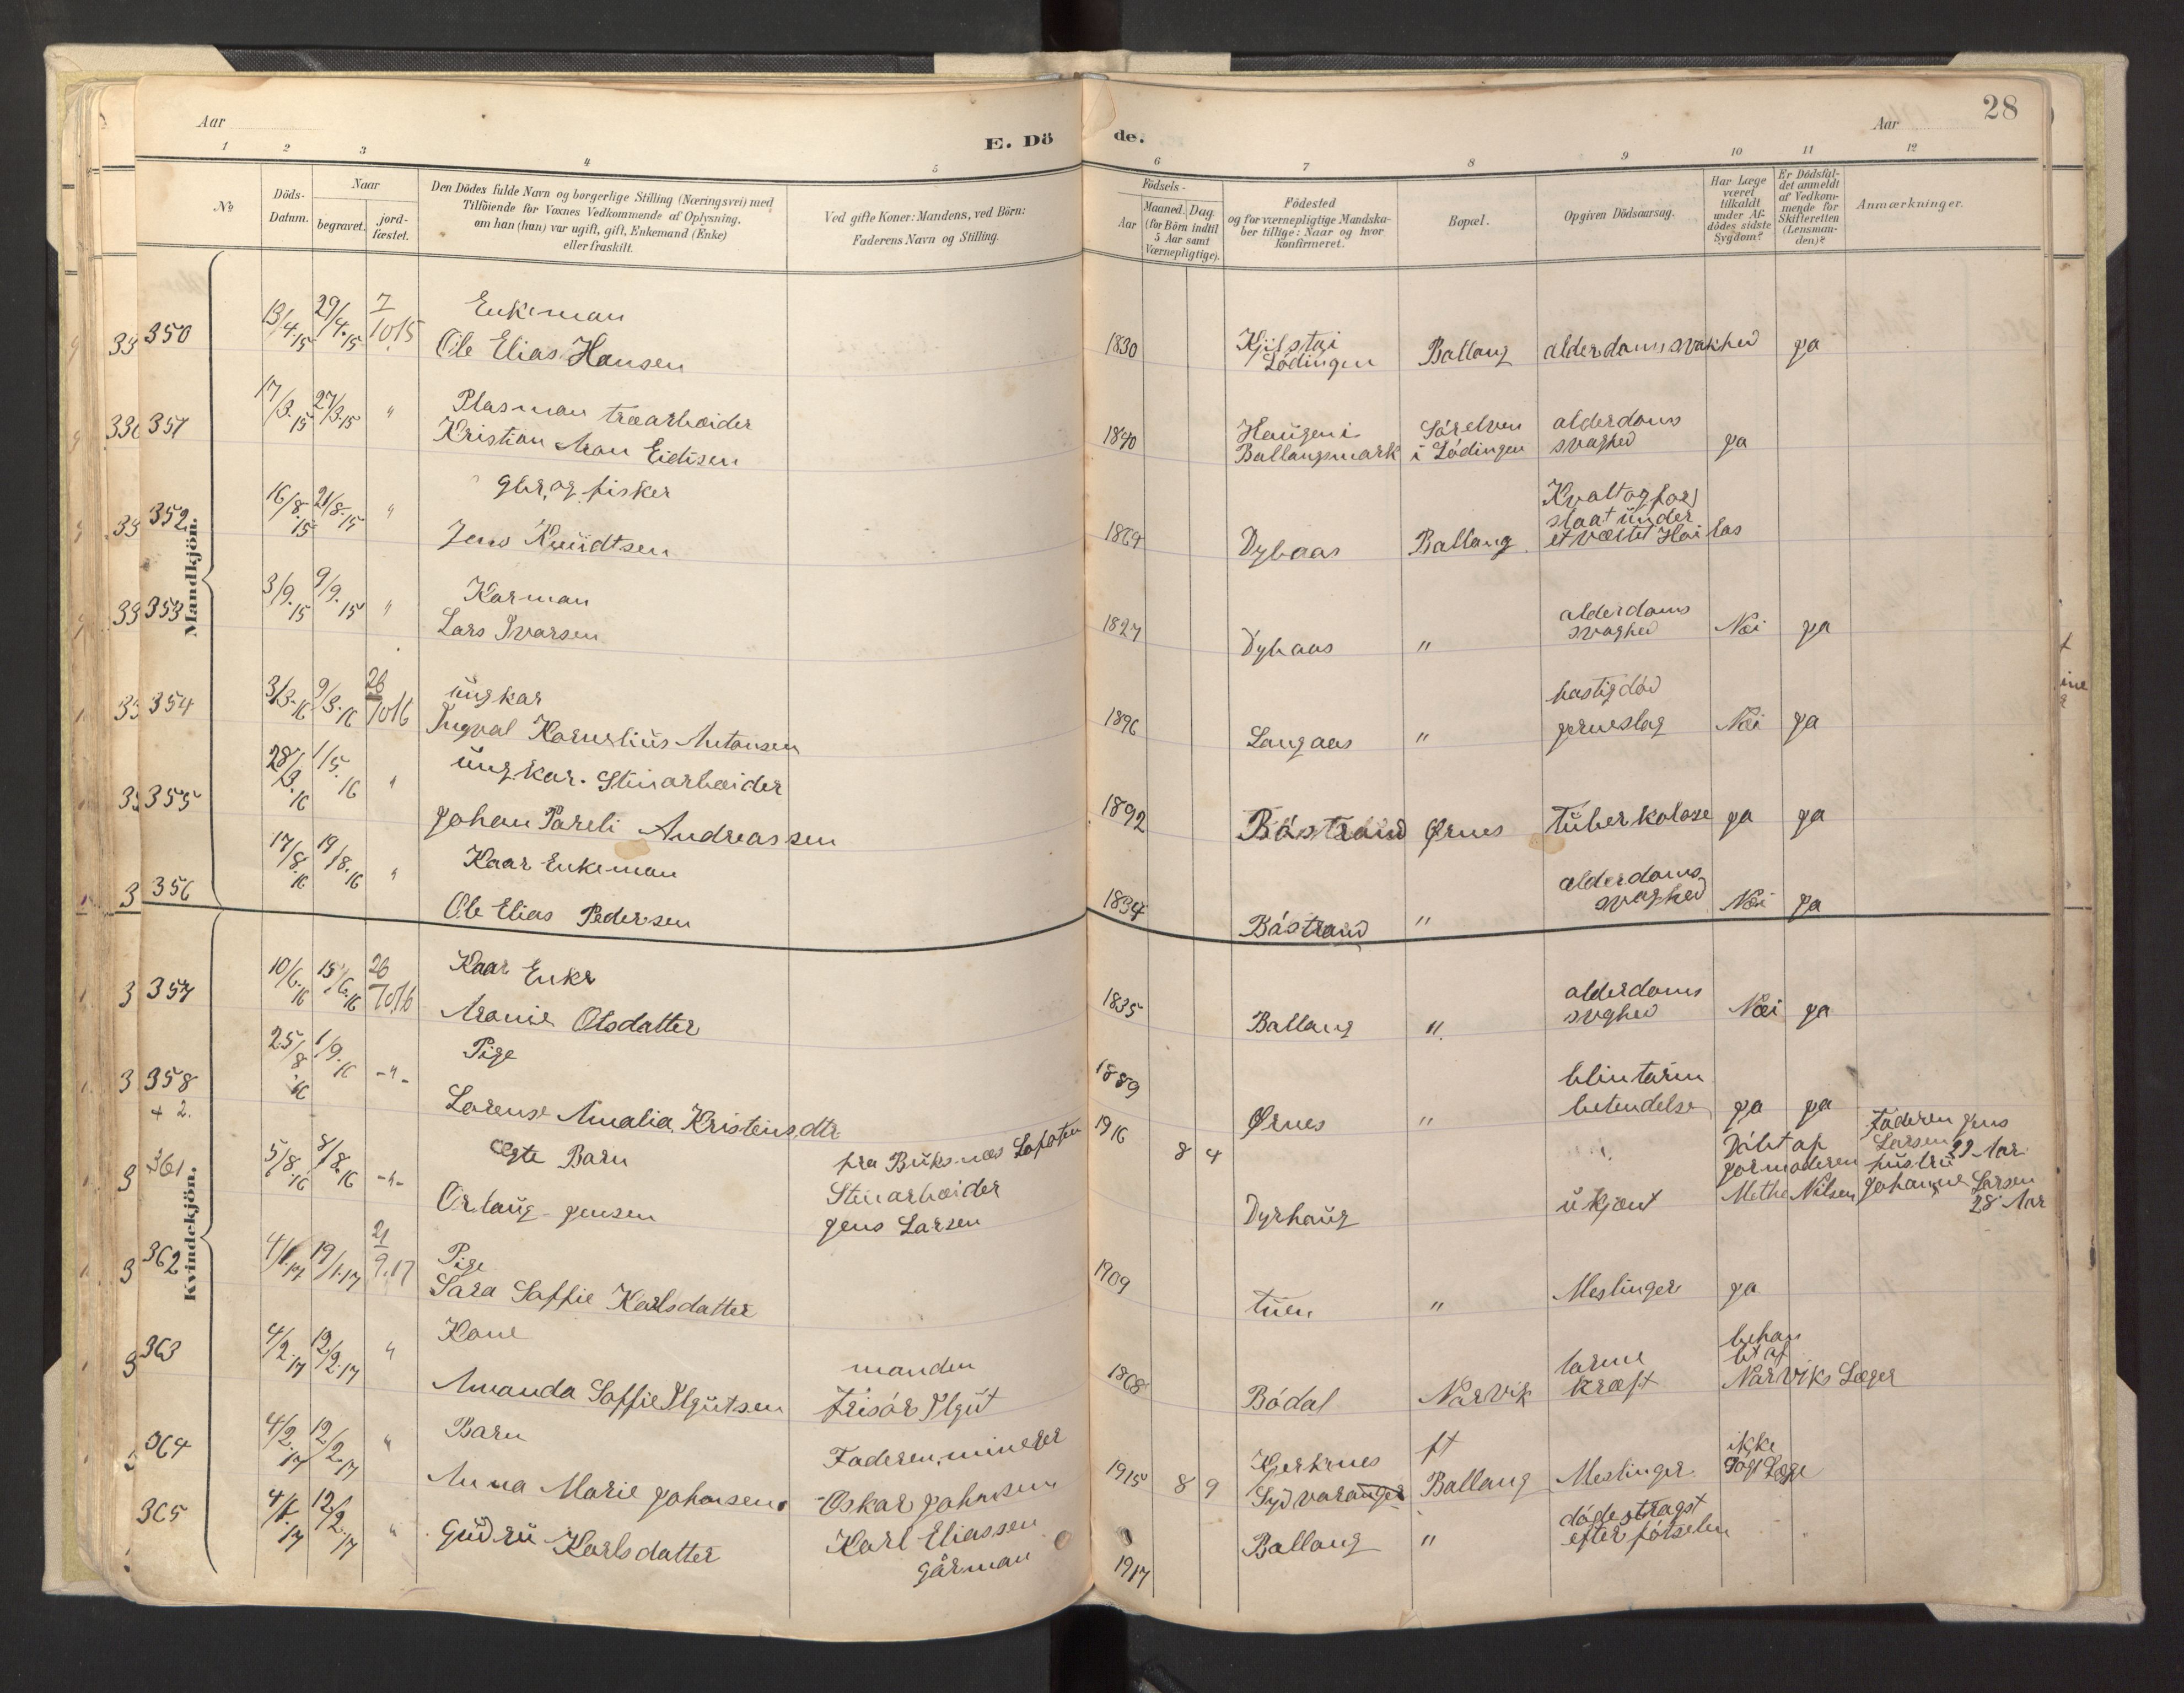 28
Aar
E. Döde.
Aar
1 2 3 4 5 6 7 8 9 10 11 12
No
Döds-Datum.
Naar
begravet.
jord-fæstet.
Den Dödes fulde Navn og borgerlige Stilling (Næringsvei) med
Tilföiende for Voxnes Vedkommende af Oplysning,
om han (hun) var ugift, gift, Enkemand (Enke)
eller fraskilt.
Ved gifte Koner: Mandens, ved Börn:
Faderens Navn og Stilling.
Födsels-
Aar
Maaned. Dag.
(for Börn indtil
5 Aar samt
Værnepligtige).
Födested
og for værnepligtige Mandska-
ber tillige: Naar og hvor
konfirmeret.
Bopæl.
Opgiven Dödsaarsag.
Har Læge
været
tilkaldt
under Af-
dödes sidste
Sygdom?
Er Dödsfal-
det anmeldt
af Vedkom-
mende for
Skifteretten
(Lensman-
den)?
Anmærkninger.
Mandkjön.
350 13/4.15 29/4.15 7/10 15 Enkeman
Ole Elias Hansen 1830 Lödingen Ballang alderdomssvakhed ja
351 17/3.15 27/3.15 " Plasman træarbeider
Kristian Aron Eidisen 1840 Haugen i Ballangsmark Sörelven i Lödingen alderdoms svaghed ja
352 16/8.15 21/8.15 " gbr. og fisker
Jens Knüdtsen 1864 Dybaas Ballang Kvalt og for
slaat ünder
et væltet Höi las
353 3/9.15 9/9.15 " Karman
Lars Ivarsen 1827 Dybaas " alderdoms svaghed Nei ja
354 3/3.16 9/3.16 26/10 16 üngkar
Ingval Kornelius Antonsen 1896 Langaas " hastig död
jerneslag Nei ja
355 28/3.16 1/5.16 " üngkar. Steinarbeider
Johan Pareli Andreassen 1892 Böstrand Ørnes tüberkolose ja ja
356 17/8.16 19/8.16 " Kaar Enkeman
Ole Elias Pedersen 1834 Böstrand " alderdoms svaghed Nei ja
Kvindekjön.
357 10/6.16 15/6.16 26/10 16 Kaar Enke
Aronie Olsdatter 1835 Ballang " alderdoms svghed Nei ja
358 25/8 16 1/9.16 -"- Pige
+ 2.
Lorense Amalia Kristensdtr 1889 Ørnes " blintarm betendelse ja ja
361 5/8.16 8/8.16 -"- Ægte Barn
Orlaüg Jensen
fra Büksnes Lofoten
Steinarbeider
Jens Larsen
1916 8 4 Dyrhaüg ükjent Döbt af
jormoderen
Methe Nilsen
Faderen Jens
Larsen 29 Aar
hüstrü
Johanne Larsen
28 Aar
362 4/1.17 19/1.17 21/9.17 Pige
Sara Saffie Karlsdatter 1909 tüen " Meslinger ja
363 4/2.17 12/2.17 " Kone
Amanda Saffie Ilgütsen
manden
frisör Ilgüt
1868 Bödal Narvik tarme kræft behan
let af
Narviks Læger
364 4/2.17 12/2.17 " Barn
Anna Marie Johnsen
Faderen minerer
Oskar Johnsen
1915 8 9 Kjerknes
Sydvaranger ft
Ballang Meslinger ikke
sögt Læge
365 4/1.17 12/2.17 " Güdrü Karlsdatter
Karl Eliassen
gårman
1917 Ballang " döde stragst
efter fötselen